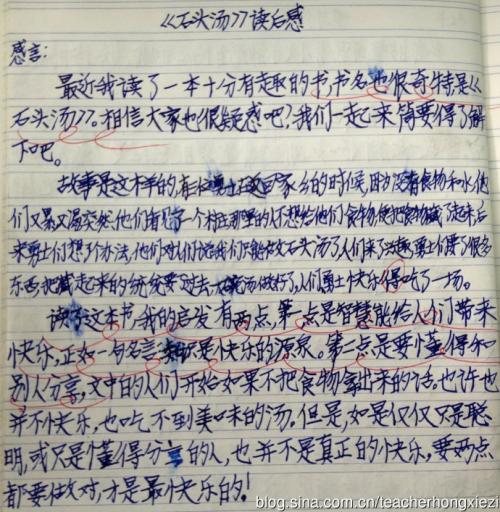 《石头汤》读后感
感言:
最近我读了一本十分有趣的书,书名也很奇特是《
石头汤》。相信大家也很疑惑吧?我们一起来简要得了解
下吧。
故事是这样的,有勇士返回家乡的时候,因为没有食物和水,他
们又累又渴突然,他们看见了一个村庄那里的人不想给他们食物,便把食物藏了起来,后
来勇士们想了个办法,他们对人们说我们只能做石头汤了人们来了兴趣,勇士们要了很多
东西,把藏起来的统统要了过去,汤做好了,人们勇士快乐得吃了一场。
读了这本书,我的启发有两点,第一点是智慧能给人们带来
快乐,正如一句名言是快乐的源泉。第二点是要懂得和
别人分享,文中的人们开始如果不把食物拿出来的话,也许也
并不快乐,也吃不到美味的汤。但是,如是仅仅只是聪
明,或只是懂得分享的人,也并不是真正的快乐,要两点
都要做对,才是最快乐的!
blog.sina.com.cn/teacherhongxiezi